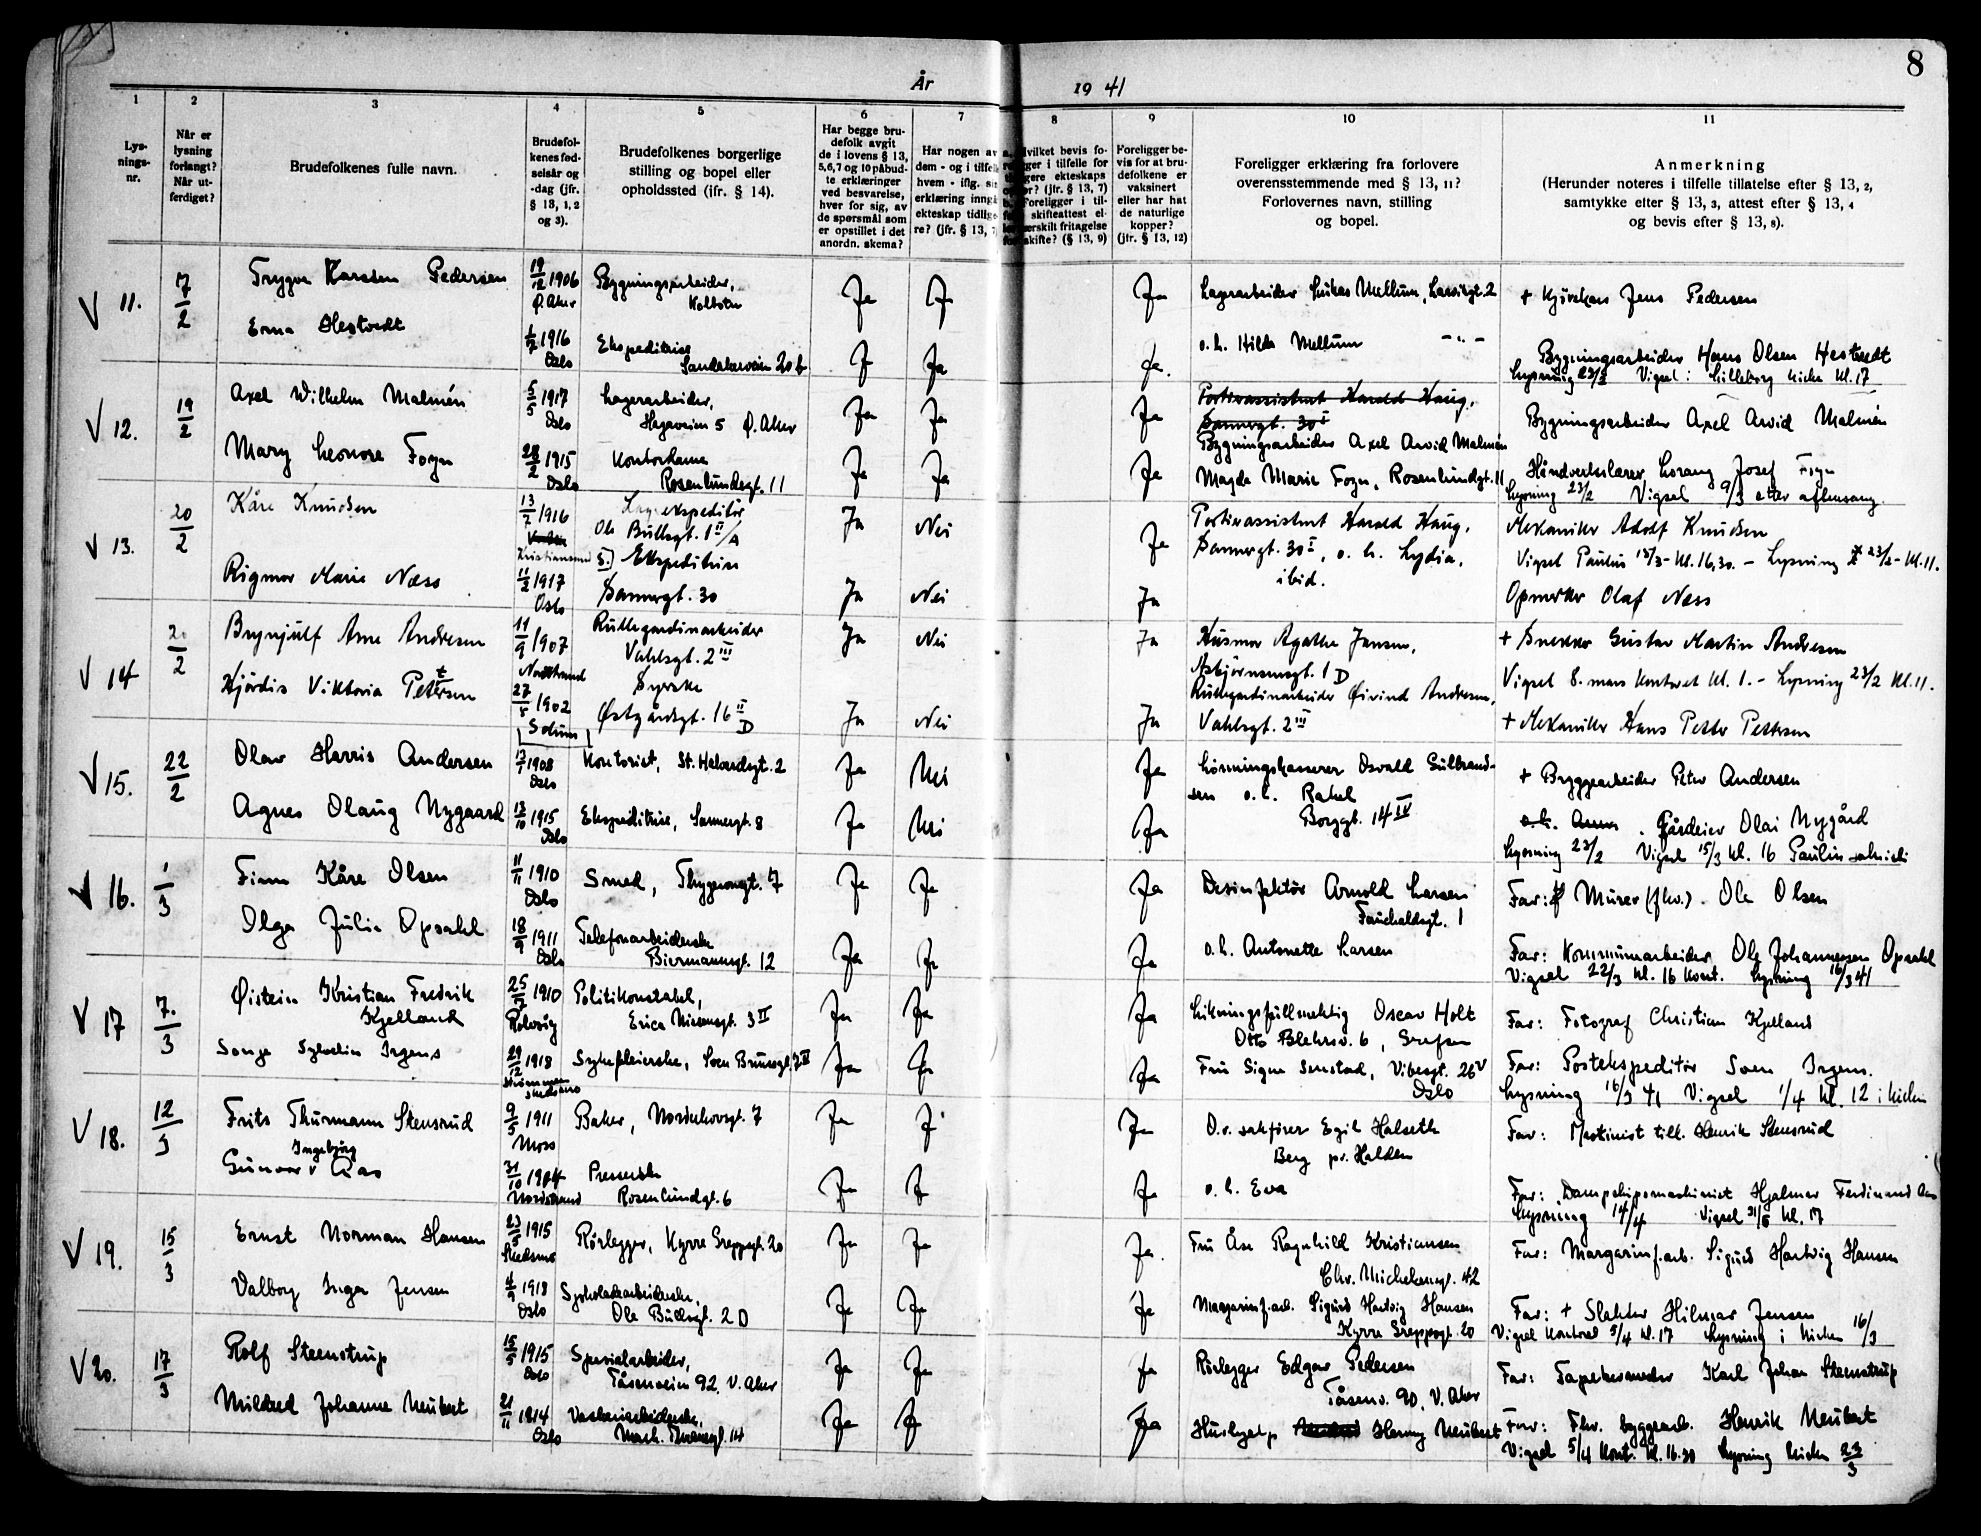 8
År 1941
1
Lysningsnr.
2
Når er lysning forlangt? Når utferdiget?
3
Brudefolkenes fulle navn.
4
Brudefolkenes fødselsår og -dag (jfr. § 13, 1, 2 og 3).
5
Brudefolkenes borgerlige stilling og bopel eller opholdssted (jfr. § 14).
6
Har begge brudefolk avgit de i lovens § 13, 5,6,7 og 10 påbudte erklæringer ved besvarelse, hver for sig, av de spørsmål som er opstillet i det anordn. skema?
7
Har nogen av dem - og i tilfelle hvem - iflg. erklæring inngå ekteskap tidligere? (jfr. § 13,
8
9
Foreligger bevis for at brudefolkene er vaksinert eller har hat de naturlige kopper? (jfr. § 13, 12)
10
Foreligger erklæring fra forlovere overensstemmende med § 13, 11? Forlovernes navn, stilling og bopel.
11
Anmerkning
(Herunder noteres i tilfelle tillatelse efter § 13, 2, samtykke efter § 13, 3, attest efter § 13, 4 og bevis efter § 13, 8).
V 11. 7/2 Trygve Karsten Pedersen 19/12 1906 Ø. Aker Bygningsarbeider, Kolbotn Ja Ja Ja Lagerarbeider Lukas Mellum, + Jens Pedersen
Erna Hestvedt 1916 Oslo Ekspeditrise Sandakerveien 20b Ja Ja Ja. o.h. Hilda Mellum - " - Bygningsarbeider Hans Olsen Hestvedt
Lysning 23/2 Vigsel: Lilleborg kirke kl. 17
V 12. 19/2 Axel Wilhelm Malmén 5/5 1917 Oslo Lagerarbeider, Hagaveien 5 Ø. Aker Ja Ja Ja Portierassistent Harald Haug, Sannergt. 30 I Bygningsarbeider Axel Arvid Malmén
Bygningsarbeider Axel Arvid Malmén
Mary Leonore Foyn 28/2 1915 Oslo Kontordame Rosenlundgt. 11 Ja Ja Ja Magda Marie Foyn, Rosenlundgt. 11 Håndverkslærer Josef Foyn
Lysning 23/2 Vigsel 9/3 etter aftensang
V 13. 20/2 Kåre Knudsen 13/7 1916 Kristiansund Ole Bullsgt. 1 II/A Ja Nei Ja Portierassistent Harald Haug, Sannergt. 30 I, o. h. Lydia, ibid. Mekaniker Adolf Knudsen
Vigsel Paulus 15/3 - kl. 16,30. - Lysning 23/2 - kl. 11.
Rigmor Marie Næss 11/2 1917 Oslo Ekspeditrise Sannergt. 30 Ja Nei Ja Opmerker Olaf Næss
V 14 20/2 Brynjulf Arne Andresen 11/9 1907 Nordstrand Rullegardinarbeider Vahlsgt. 2 III Ja Nei Ja Husmor Agathe Jansen, Asbjørnsensgt. 1 D + Snekker Gustav Martin Andresen
Vigsel S. mans kontoret kl. 1. - Lysning 23/2 kl. 11.
Hjørdis Viktoria Pettersen 27/5 1902 Solum Syerske Østgårdsgt. 16 II D Ja Nei Ja Rullegardinarbeider Øivind Andresen, Vahlsgt. 2 III + Mekaniker Hans Petter Pettersen
V 15. 22/2 Olav Harris Andersen 1908 Oslo Kontorist, St. Halvardsgt. 2 Ja Nei Ja Lønningskasserer Osvald Gulbrandsen o.h. Rakel Borggt. 14 IV + Bryggearbeider Peter Andersen
Agnes Olaug Nygaard 13/10 1915 Oslo Ekspeditrise, Sannergt. 8 Ja Nei Ja Gårdeier Olai Nygård
Lysning 23/2 Vigsel 15/3 kl. 16 Paulus
V 16. 1/3 Finn Kåre Olsen 11/11 1910 Oslo Smed, Thygesonsgt. 7 Ja Ja Ja Desinfektør Arnold Larsen Fauchaldsgt. 1 Far: Murer (fhv.). Ole Olsen
Olga Julie Opsahl 18/9 1911 Oslo Telefonarbeiderske Biermannsgt. 12 Ja Ja Ja o.h. Antonette Larsen Far: Kommunearbeider Ole Johannessen Opsahl
Vigsel 22/3 kl. 16 kont. Lysning 16/3 41
V 17 7./3 Øistein Kristian Fredrik Kjelland 25/7 1910 Rolvsøy Politikonstabel, Erica Nissensgt. 3 II Ja Ja Ja Likningsfullmektig Oscar Holt Otto Blehrsv. 6, Grefsen Far: Fotograf Christian Kjelland
Sonja Irgens 29/12 1918 Strømmen Sykepleierske, Sven Brunsgt. Ja Ja Ja Fru Signe Senstad, Vibesgt. 26 V Oslo Far: Postekspeditør Sven Irgens.
Lysning 16/3 41 Vigsel 1/4 kl. 12 i kirken
V 18. 12/3 Frits Thurmann Stensrud 9/5 1911 Moss Baker, Norderhovsgt. 7 Ja Ja Ja O.r. sakfører Egil Halseth Berg pr. Halden Far: Maskinist Henrik Stensrud
Gunvor Ingebjørg Aas 31/10 1904 Nordstrand Presserske Rosenlundgt. 6 Ja Ja Ja o.h. Eva Far: Dampskipsmaskinist Hjalmar Ferdinand Aas
Lysning 14/4 Vigsel 31/5 kl. 17
V 19. 15/3 Ernst Norman Hansen 23/5 1915 Skedsmo Rørlegger, Kyrre Greppsgt. 20 Ja Ja Ja. Fru Åse Ragnhild Kristiansen Chr. Michelsensgt. 42 Far: Margarinf.arb. Sigurd Hartvig Hansen
Valborg Inger Jensen 4/9 1918 Oslo Sjokoladearbeiderske, Ole Bullsgt. 2 D Ja Ja Ja Margarinf.arb. Sigurd Hartvig Hansen Kyrre Greppsgt. 20 Far: + Slakter Hilmar Jensen
Vigsel kontoret 5/4 kl. 17 Lysning i kirken 16/3
V 20. 17/3 Rolf Steenstrup 15/5 1915 Oslo Spesialarbeider, Tåsenveien 92, V. Aker Ja Ja Ja Rørlegger Edgar Pedersen Tåsenv. 90, V. Aker Far: Tapetserer Karl Johan Steenstrup
Mildred Johanne Neubert 21/11 1914 Oslo Vaskeriarbeiderske, Ja Ja Ja Henny Neubert Far: Fhv. byggearb. Henrik Neubert
Vigsel 5/4 kont. kl. 16.30 Lysning kirken 23/3